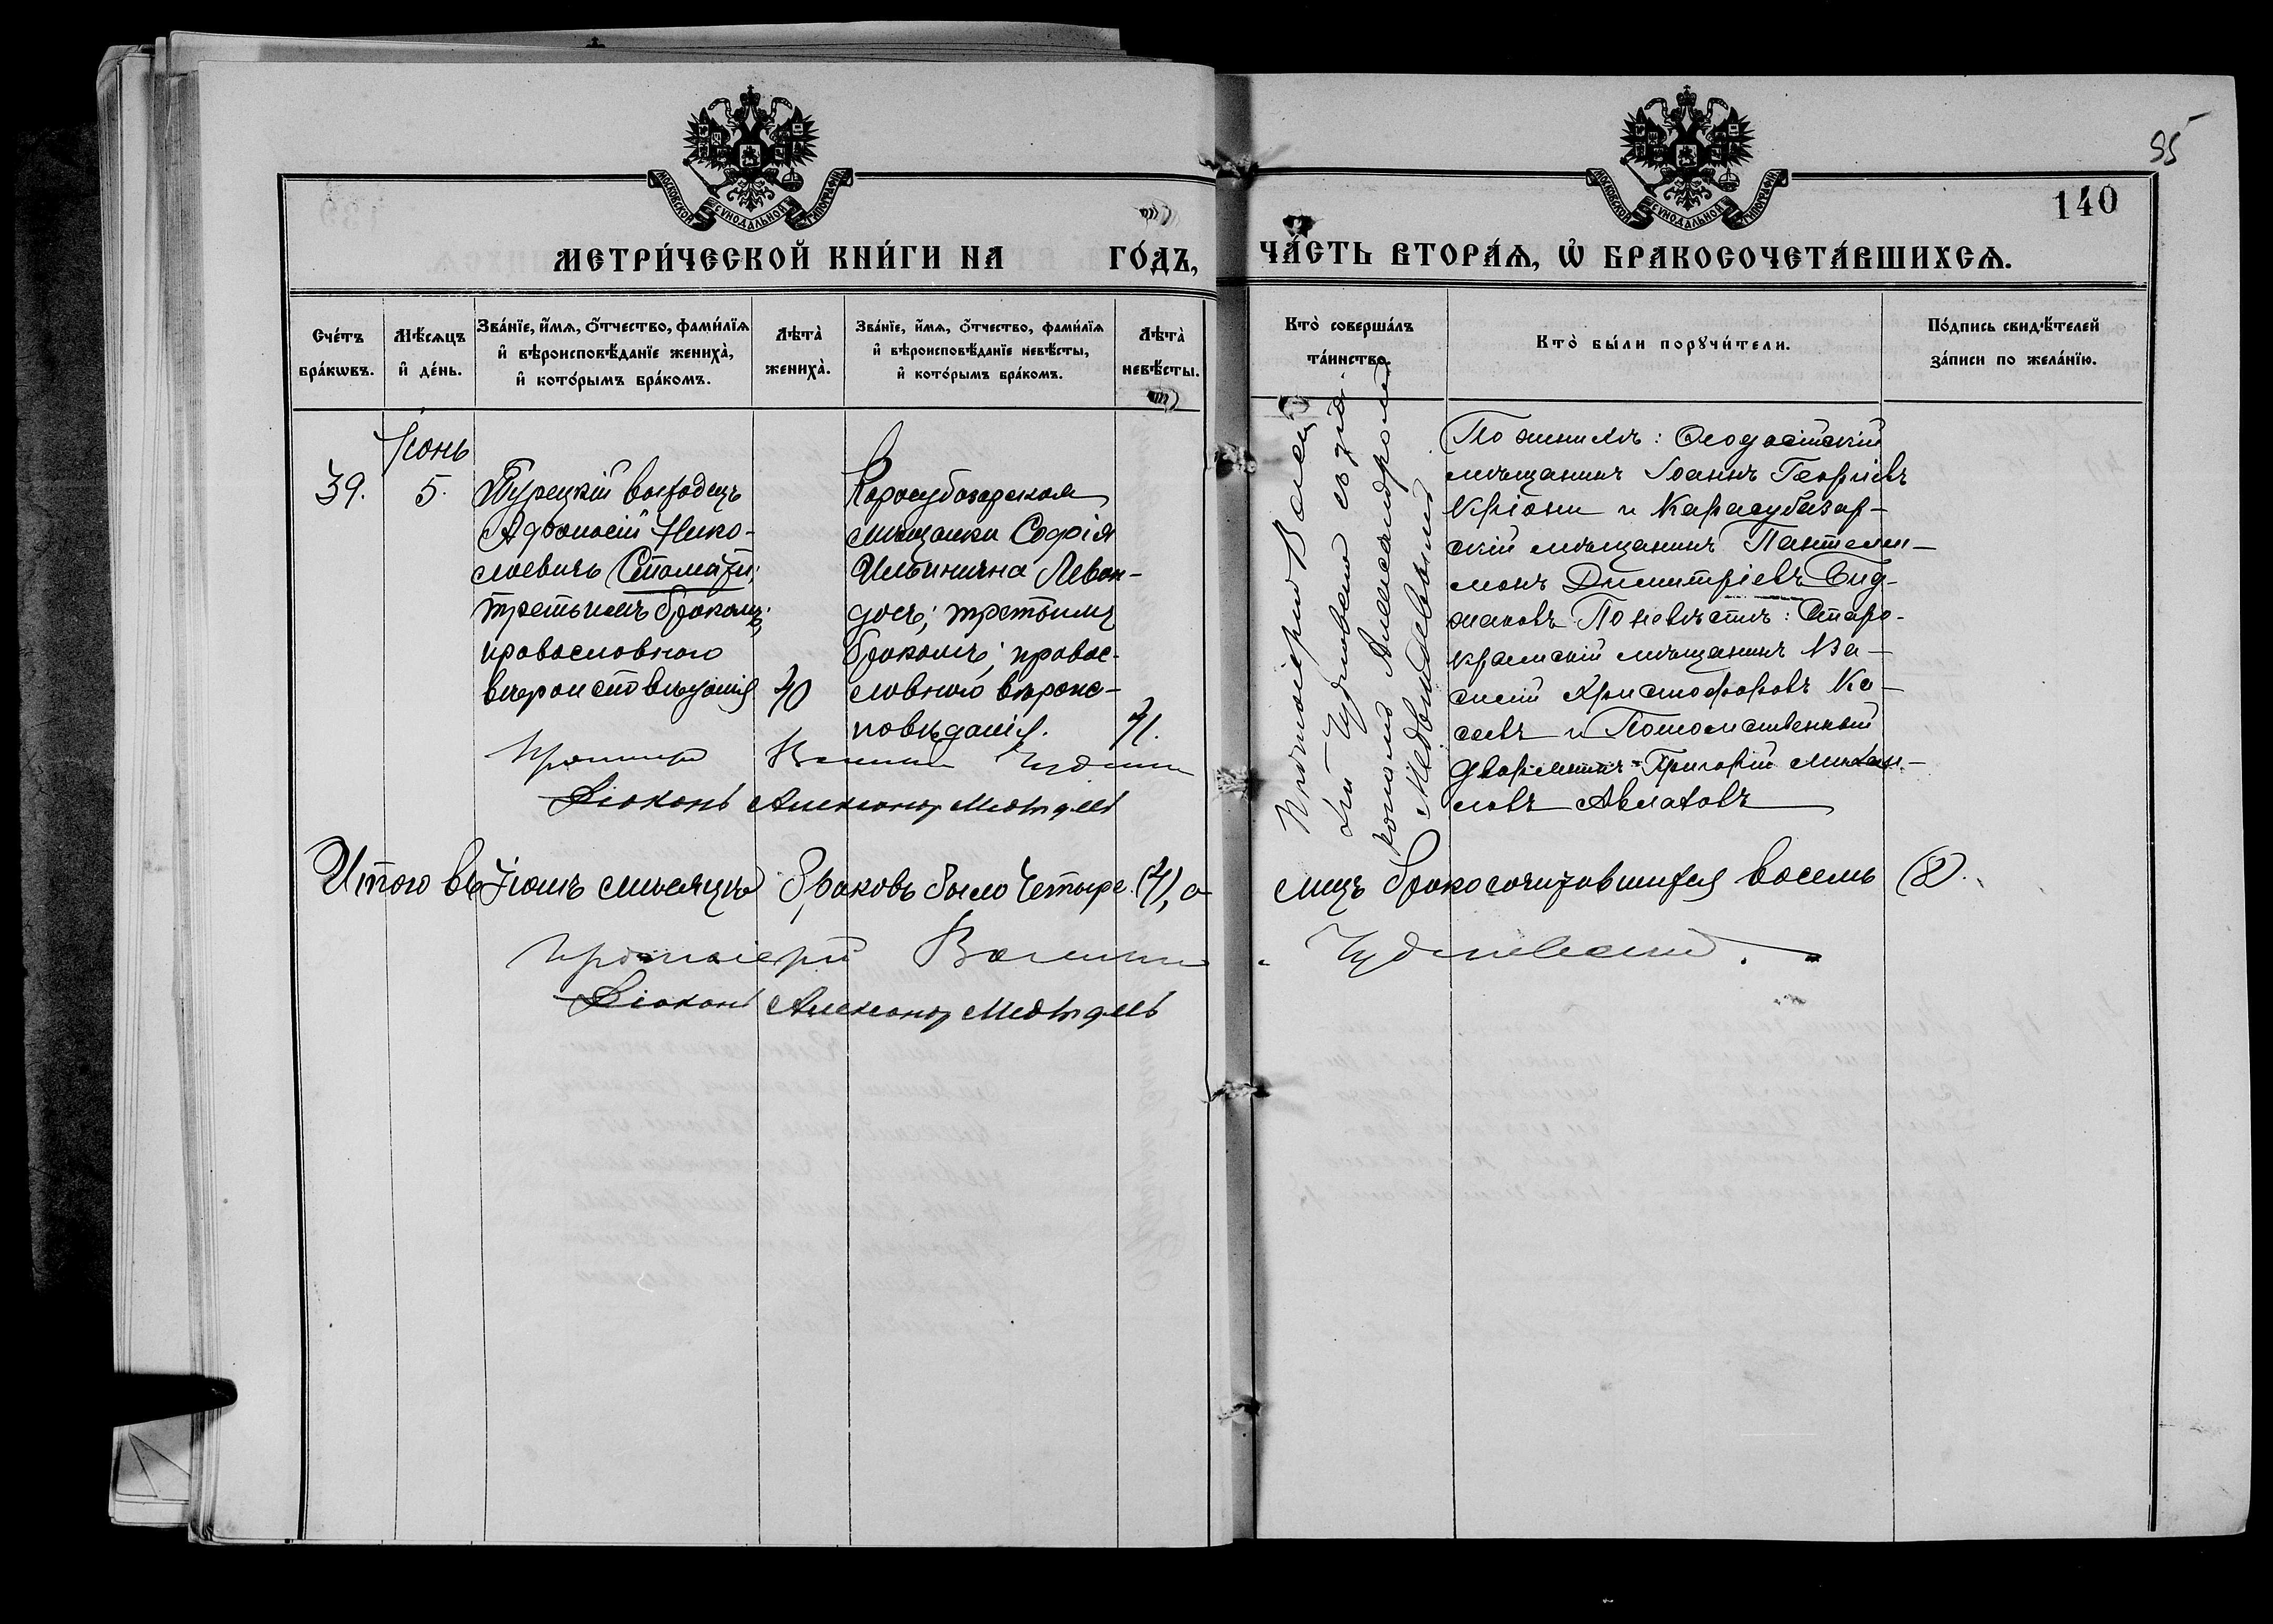 95
140
МОСКОВСКОЙ СУНОДАЛЬНОЙ ТИПОГРАФІИ
МОСКОВСКОЙ СУНОДАЛЬНОЙ ТИПОГРАФІИ
МЕТРИ́ЧЕСКОЙ КНИ́ГИ НА ГО́ДЪ,
ЧА́СТЬ ВТОРА́Ѧ, Ѡ҆ БРАКОСОЧЕТА́ВШИХСѦ.
Сче́тъ
бра́кѡвъ.
Мѣ́сѧцъ
и҆ де́нь.
Зва́нїе, и҆́мѧ, о҆́тчество, фами́лїѧ
и҆ вѣроисповѣ́данїе жениха̀,
и҆ кото́рымъ бра́комъ.
Лѣта̀
жениха̀.
Зва́нїе, и҆́мѧ, о҆́тчество, фами́лїѧ
и҆ вѣроисповѣ́данїе невѣ́сты,
и҆ кото́рымъ бра́комъ.
Лѣта̀
невѣ́сты.
Кто̀ соверша́лъ
та́инство.
Кто̀ бы́ли порꙋчи́тели.
По́дпись свидѣ́телей
за́писи по жела́нїю.
Іюнь
39.
5.
Турецкій выходецъ
Афанасій Нико-
лаевичъ Стамати;
третьимъ бракомъ;
православнаго
вѣроисповѣданія
40
Карасубазарская
мѣщанка Софія
Ильинична Леван-
досъ; третьимъ
бракомъ; правос-
лавнаго вѣроис-
повѣданія.
41.
Протоіерей Васи-
лій
съ діа-
кономъ Александромъ
Медвѣдевымъ
По женихѣ: Ѳеодосійскій
мѣщанинъ Іоаннъ Георгіевъ
Кріони и Карасубазар-
скій мѣщанинъ Пантелей-
монъ Димитріевъ Бид-
жаковъ По невѣстѣ: Старо-
крымскій мѣщанинъ Ва-
силій Христофоровъ Ко-
севъ и Потомственный
дворянинъ Григорій Михаи-
ловъ Авлаховъ
Діаконъ Александръ Медвѣдевъ
Итого въ Іюнѣ мѣсяцѣ браковъ было четыре (4), а
лицъ бракосочетавшихся восемь (8).
Протоіерей Василій
Діаконъ Александръ Медвѣдевъ